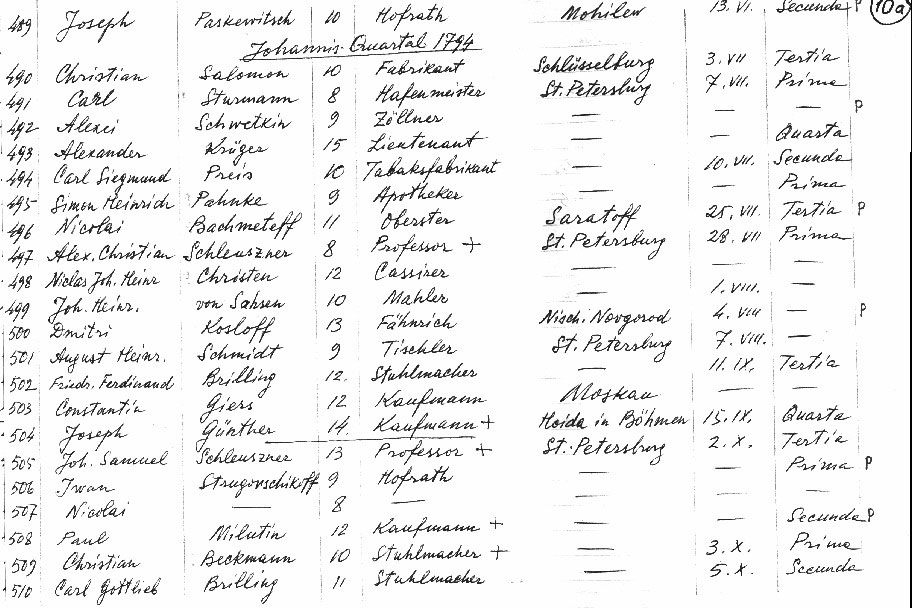 489 Joseph Paskewitsch 10 Hofrath Mohilew 13. VI. Secunda P 10a
Johannis-Quartal 1794
490 Christian Salomon 10 Fabrikant Schlüsselburg 3. VII Tertia
491 Carl Sturmann 8 Hafenmeister St. Petersburg 7. VII. Prima
492 Alexei Schwetkin 9 Zöllner — — — P
493 Alexander Krüger 15 Lieutenant — — Quarta
494 Carl Siegmund Preis 10 Tabaksfabrikant — 10. VII. Secunda
495 Simon Heinrich Pahnke 9 Apotheker — — Prima
496 Nicolai Bachmeteff 11 Oberster Saratoff 25. VII. Tertia P
497 Alex. Christian Schleuszner 8 Professor + St. Petersburg 28. VII Prima
498 Niclas Joh. Heinr Christen 12 Cassirer — — —
499 Joh. Heinr. von Sahsen 10 Mahler — 1. VIII. —
500 Dmitri Kosloff 13 Fähnrich Nisch. Novgorod 4. VIII — P
501 August Heinr. Schmidt 9 Tischler St. Petersburg 7. VIII. —
502 Friedr. Ferdinand Brilling 12. Stuhlmacher — 11. IX. Tertia
503 Constantin Giers 12 Kaufmann Moskau — —
504 Joseph Günther 14 Kaufmann + Haida in Böhmen 15. IX. Quarta
505 Joh. Samuel Schleuszner 13 Professor + St. Petersburg 2. X. Tertia
506 Iwan Strugovschikoff 9 Hofrath — — Prima P
507 Nicolai — 8 — — — —
508 Paul Milutin 12 Kaufmann + — — Secunda P
509 Christian Beckmann 10 Stuhlmacher + — 3. X. Prima
510 Carl Gottlieb Brilling 11 Stuhlmacher — 5. X. Secunda